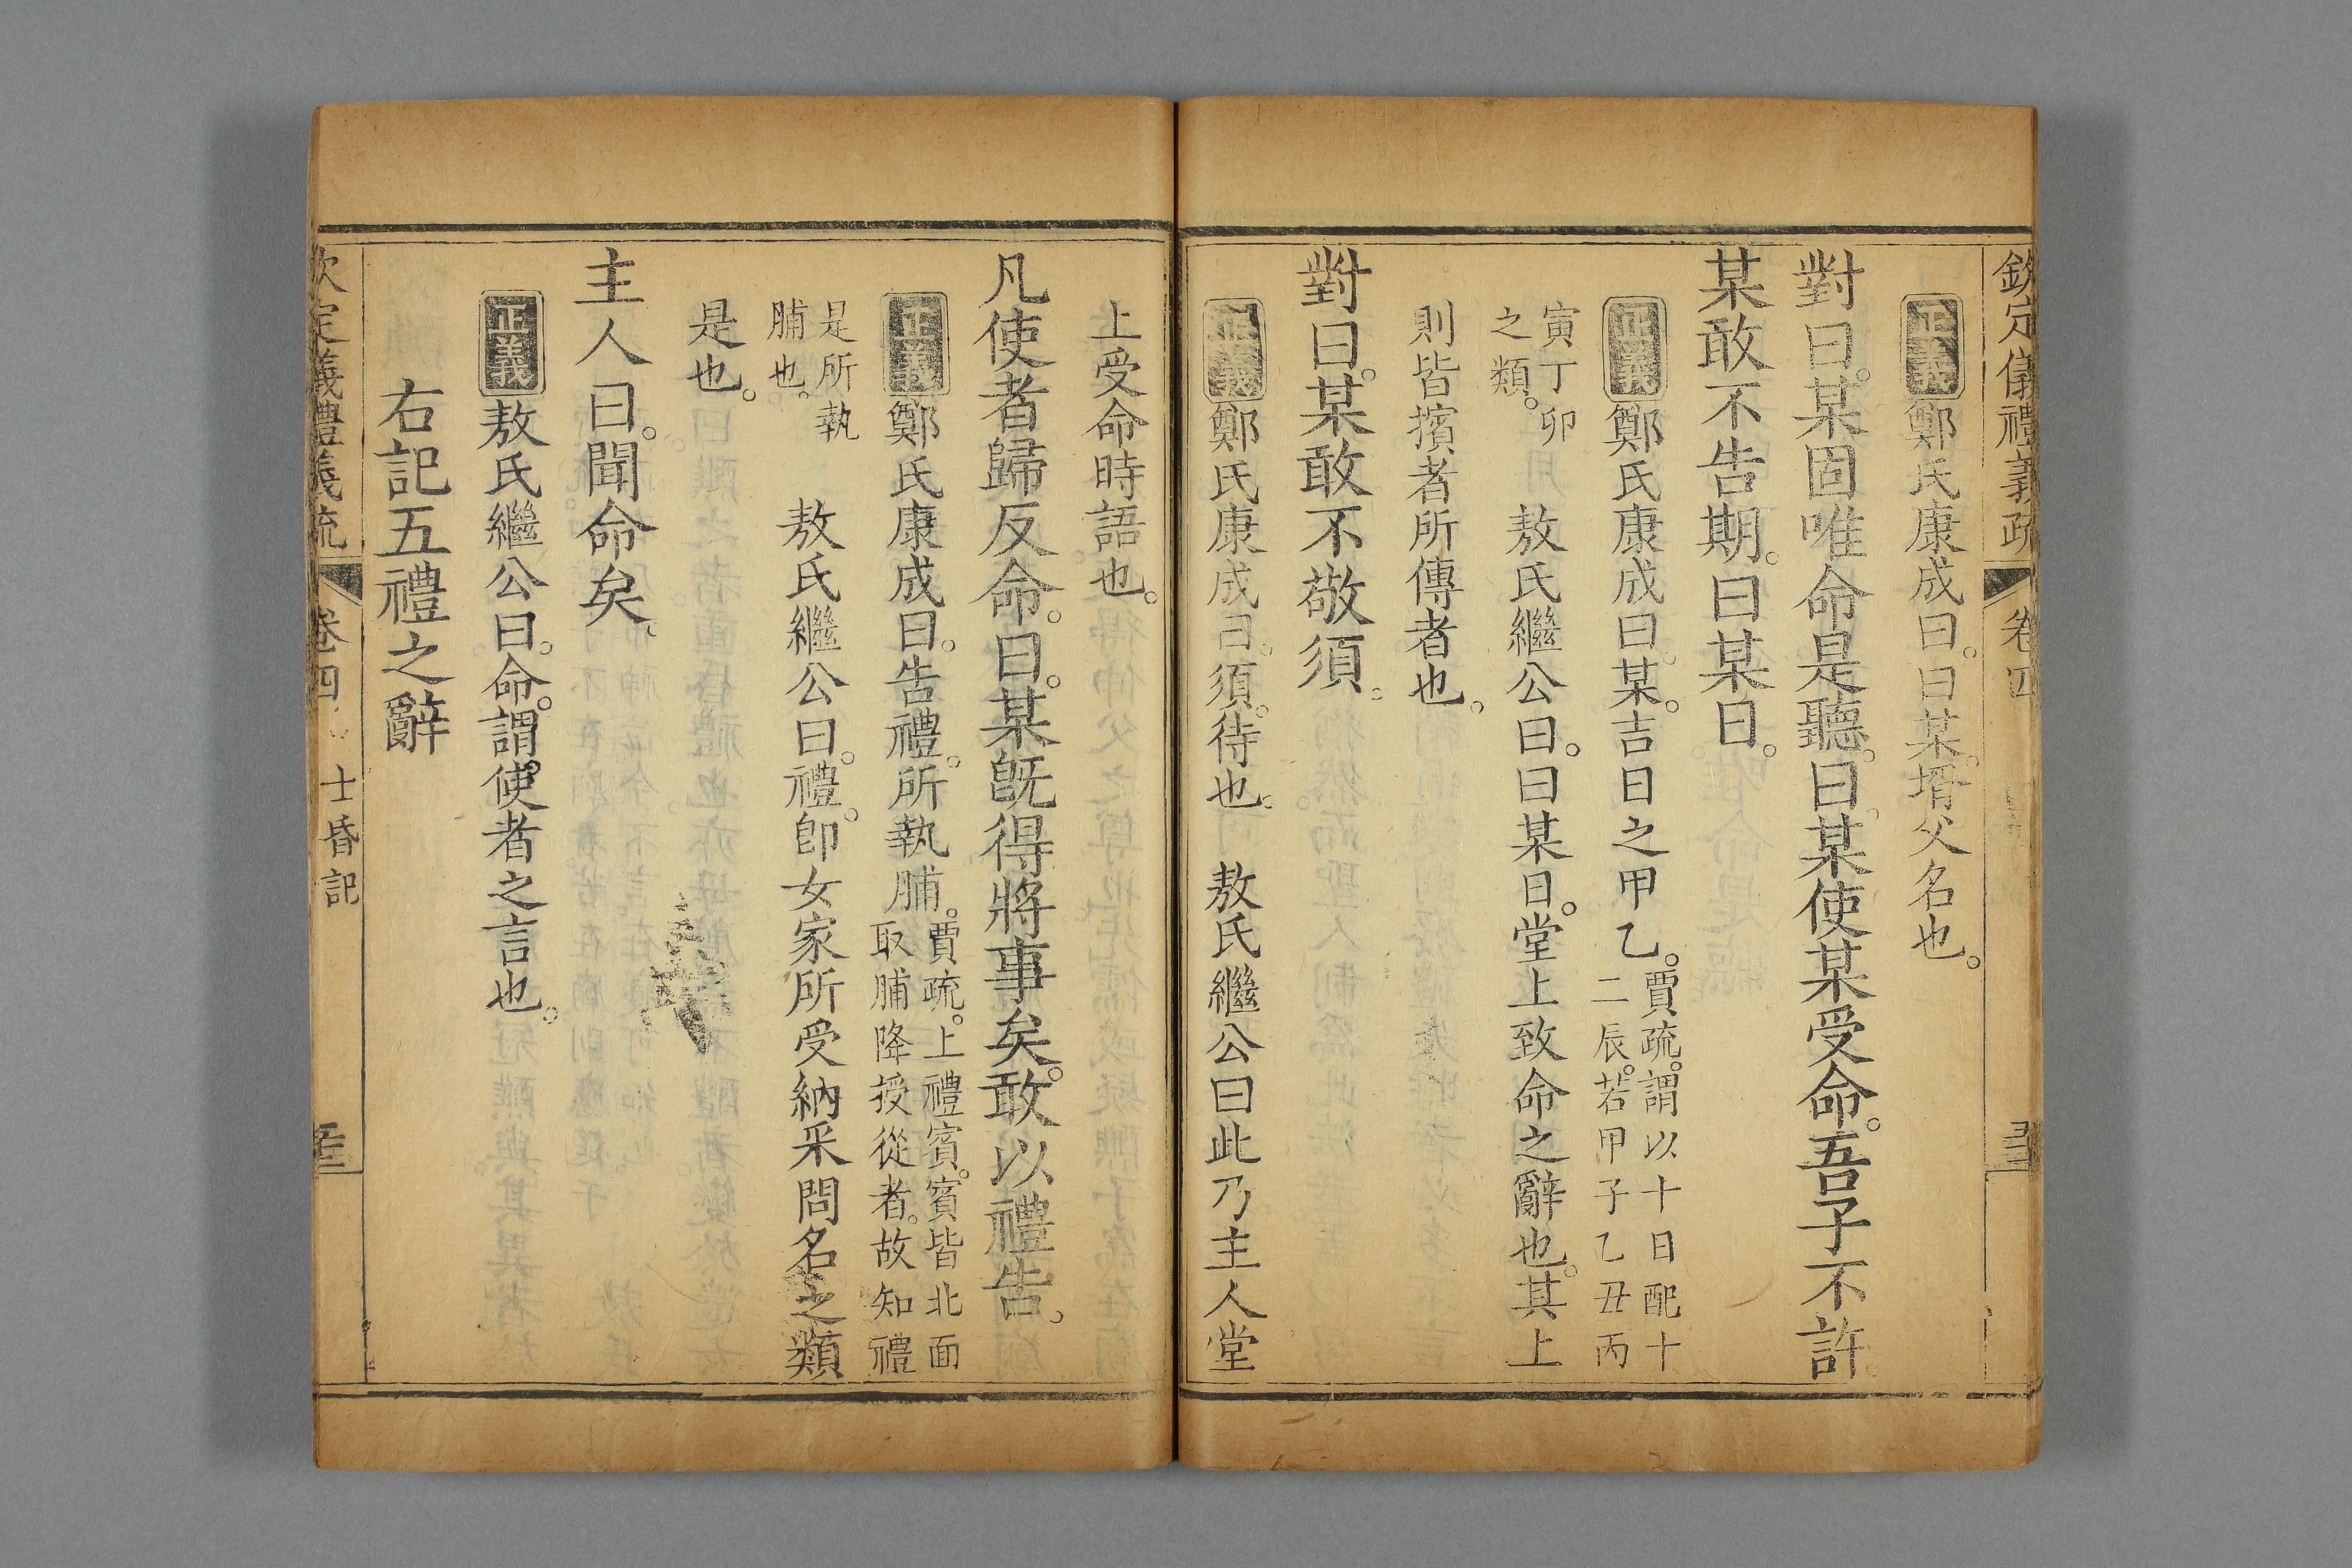 欽定儀禮義疏 卷四
正義鄭氏康成曰。曰某。壻父名也。
對曰。某固唯命是聽。曰。某使某受命。吾子不許
某敢不告期。曰某日。
正義鄭氏康成曰。某。吉日之甲乙。賈疏。謂以十日配十
二辰。若甲子乙丑丙
寅丁卯
之類。 敖氏繼公曰。曰某日。堂上致命之辭也。其上
則皆擯者所傳者也。
對曰。某敢不敬須。
正義鄭氏康成曰。須。待也。 敖氏繼公曰此乃主人堂
上受命時語也。
凡使者歸反命。曰。某旣得將事矣。敢以禮告。
正義鄭氏康成曰。告禮。所執脯。賈疏。上禮賓。賓皆北面
取脯降授從者。故知禮
是所執
脯也。 敖氏繼公曰。禮。卽女家所受納采問名之類
是也。
主人曰。聞命矣。
正義敖氏繼公曰。命。謂使者之言也。
右記五禮之辭
欽定儀禮義疏 卷四 士昏記